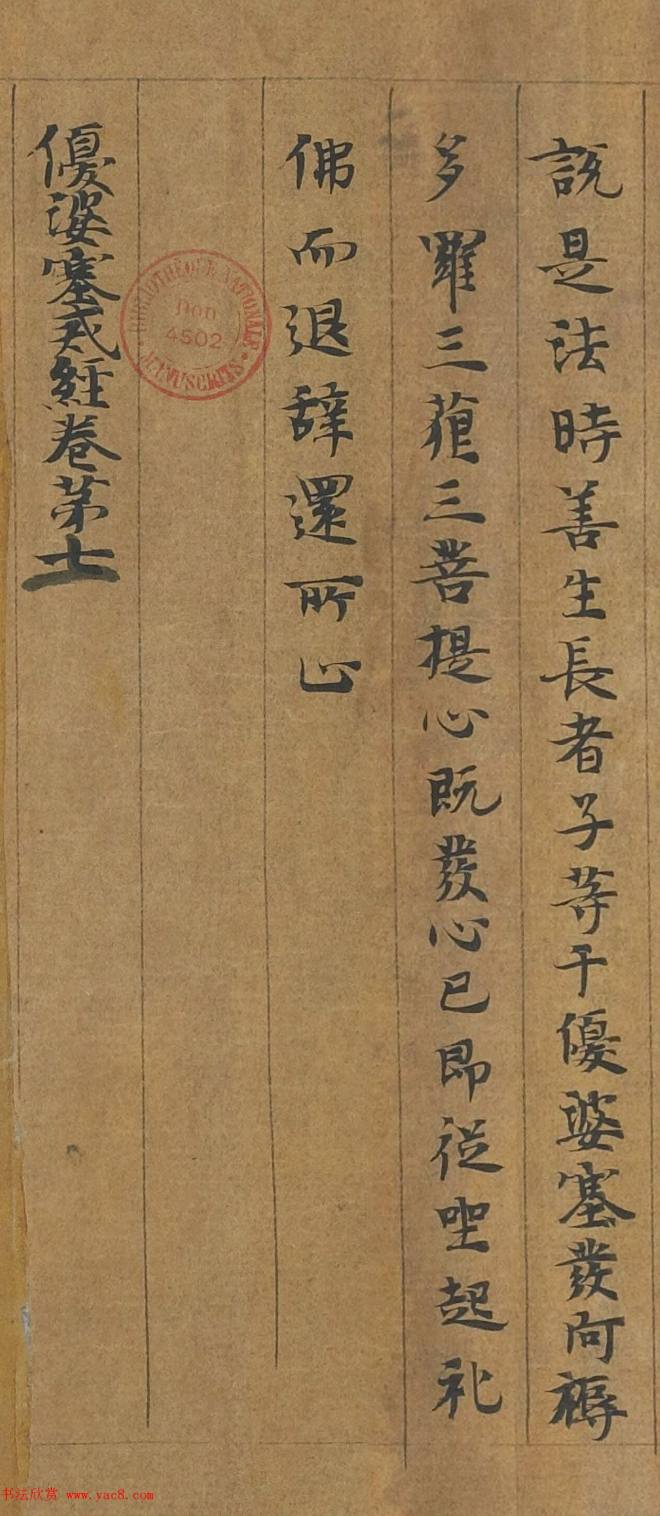 説是法時善生長者子等千優婆塞發阿耨
多羅三藐三菩提心既發心已即從坐起礼
佛而退辞還所止
優婆塞戒經卷第十
BIBLIOTHÈQUE NATIONALE
Don
4502
MANUSCRITS
书法欣赏 www.yac8.com